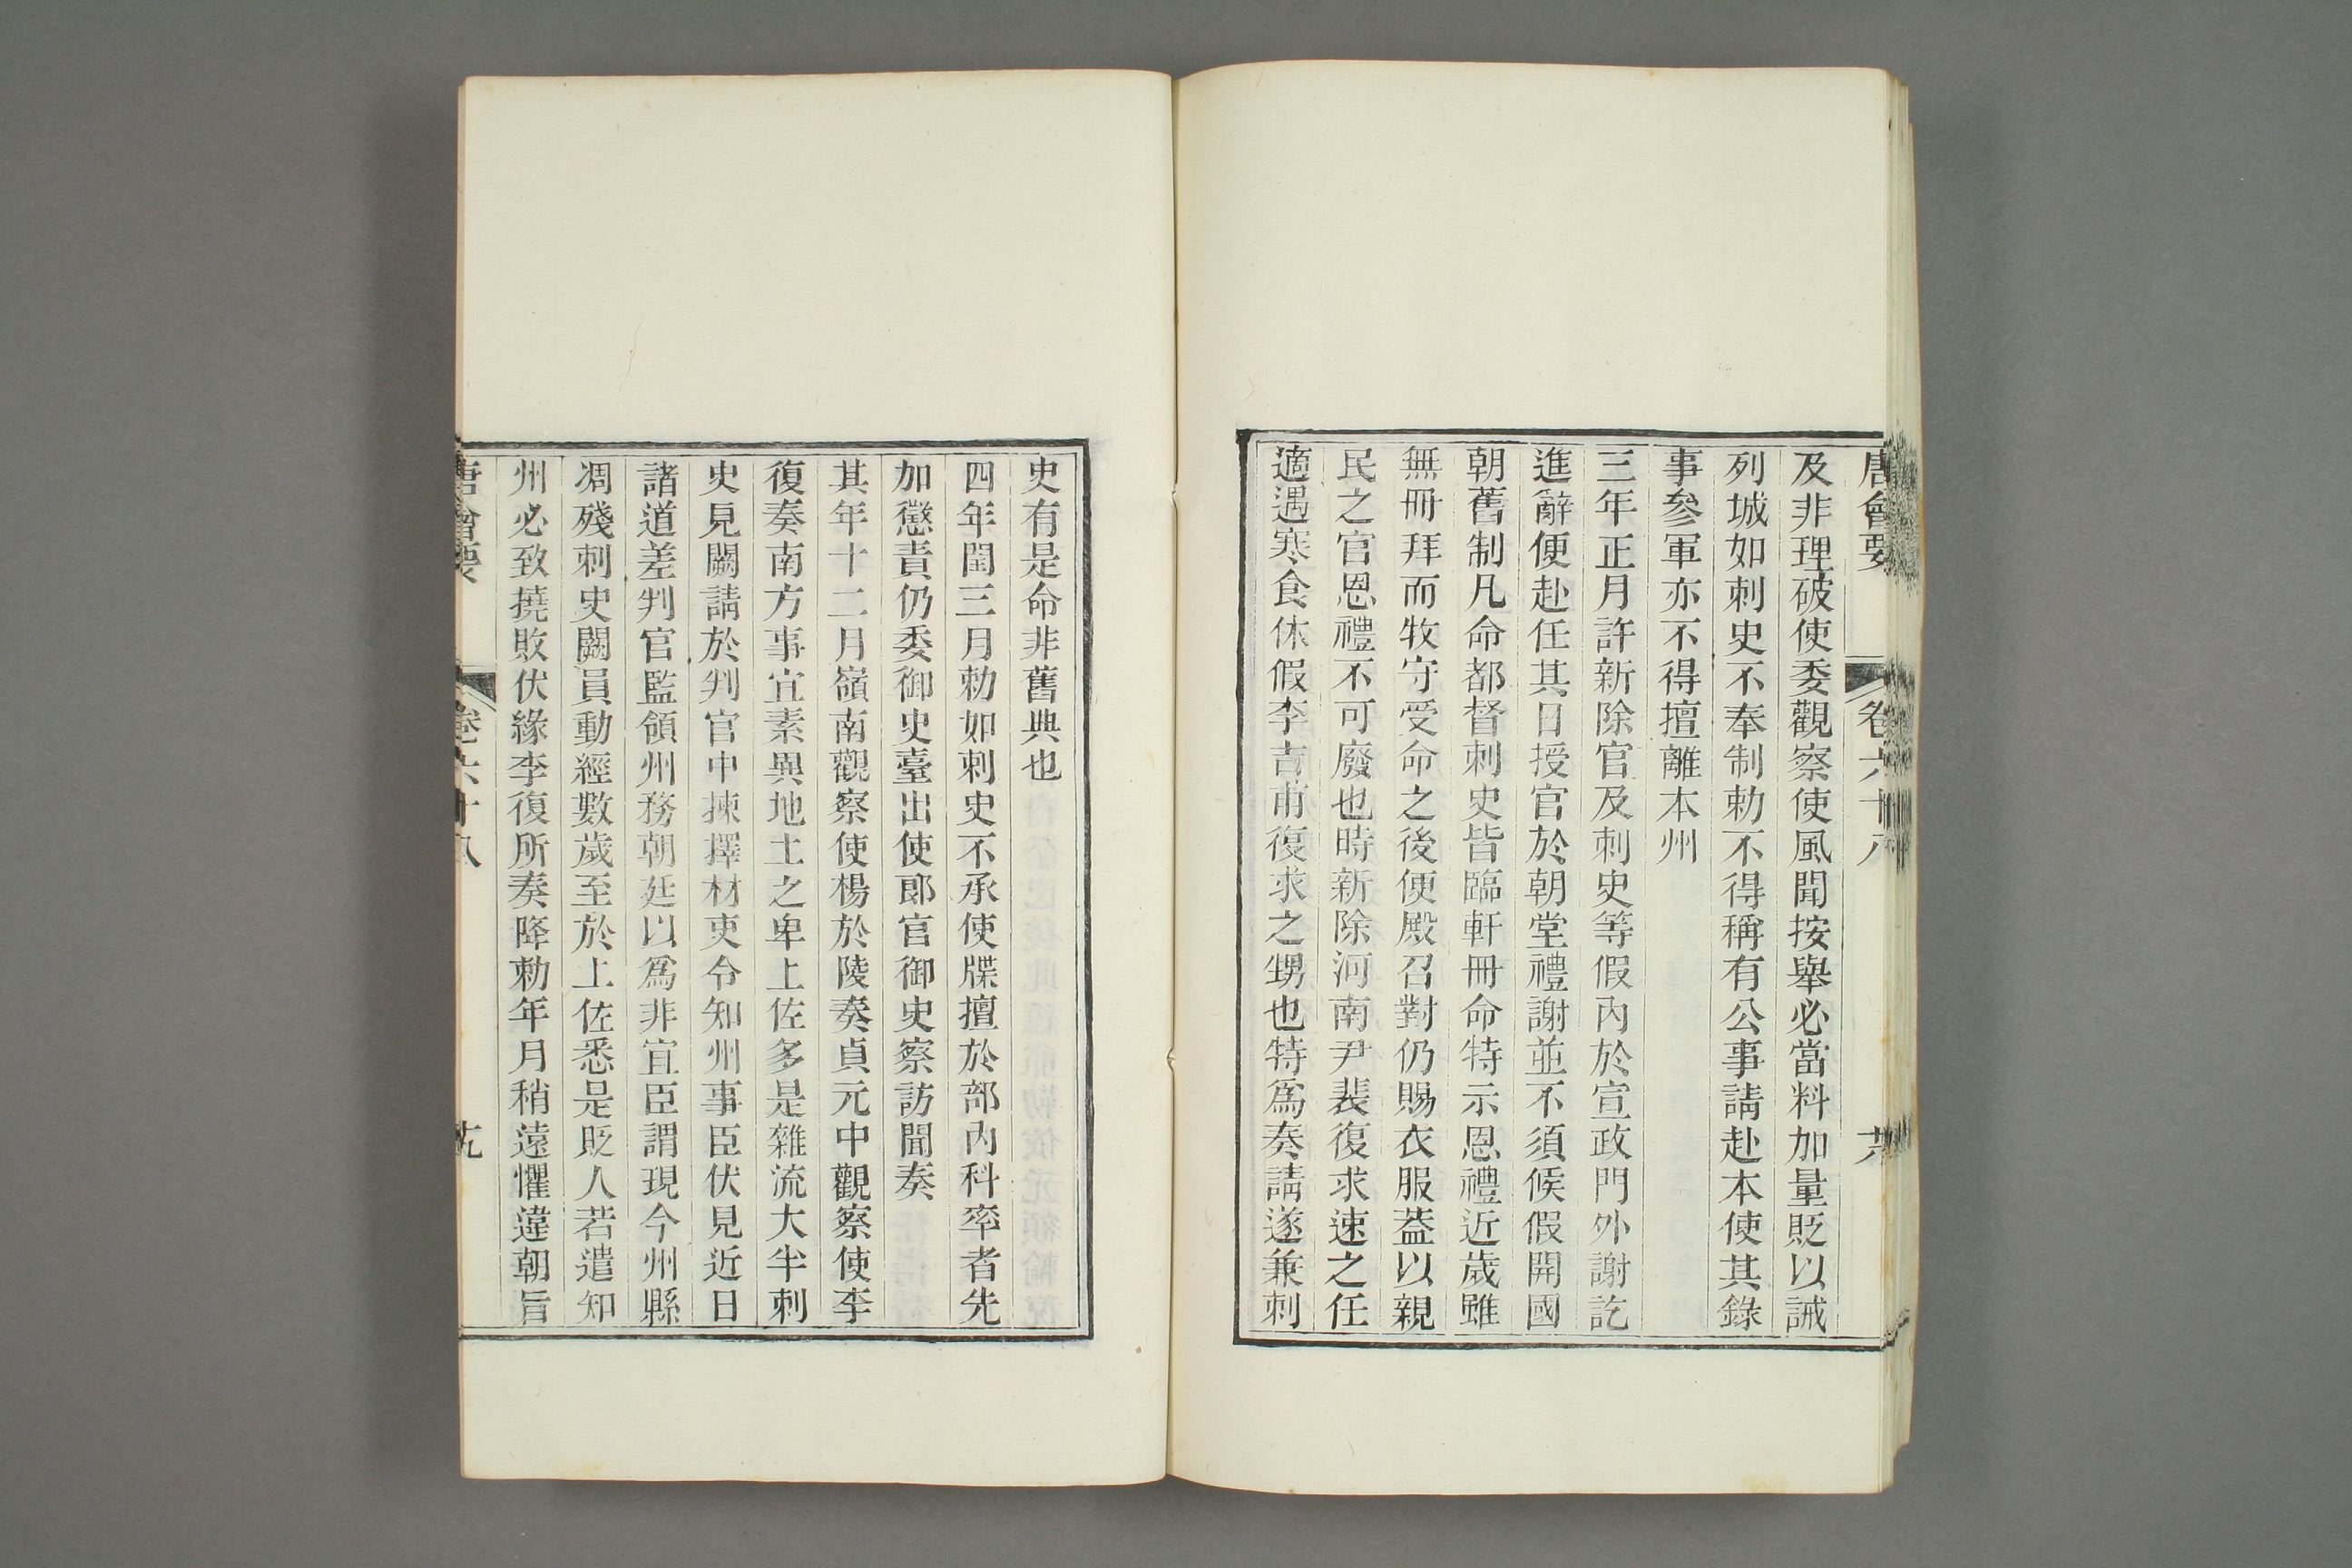 唐會要 卷六十八 十八
及非理破使委觀察使風聞按舉必當料加量貶以誡
列城如刺史不奉制勅不得稱有公事請赴本使其錄
事參軍亦不得擅離本州
三年正月許新除官及刺史等假內於宣政門外謝訖
進辭便赴任其日授官於朝堂禮謝並不須候假開國
朝舊制凡命都督刺史皆臨軒冊命特示恩禮近歲雖
無冊拜而牧守受命之後便殿召對仍賜衣服蓋以親
民之官恩禮不可廢也時新除河南尹裴復求速之任
適遇寒食休假李吉甫復求之甥也特爲奏請遂兼刺
史有是命非舊典也
四年閏三月勅如刺史不承使牒擅於部內科率者先
加懲責仍委御史臺出使郎官御史察訪聞奏
其年十二月嶺南觀察使楊於陵奏貞元中觀察使李
復奏南方事宜素異地土之卑上佐多是雜流大半刺
史見闕請於判官中揀擇材吏令知州事臣伏見近日
諸道差判官監領州務朝廷以爲非宜臣謂現今州縣
凋殘刺史闕員動經數歲至於上佐悉是貶人若遣知
州必致撓敗伏緣李復所奏降勅年月稍遠懼違朝旨
唐會要 卷六十八 十九